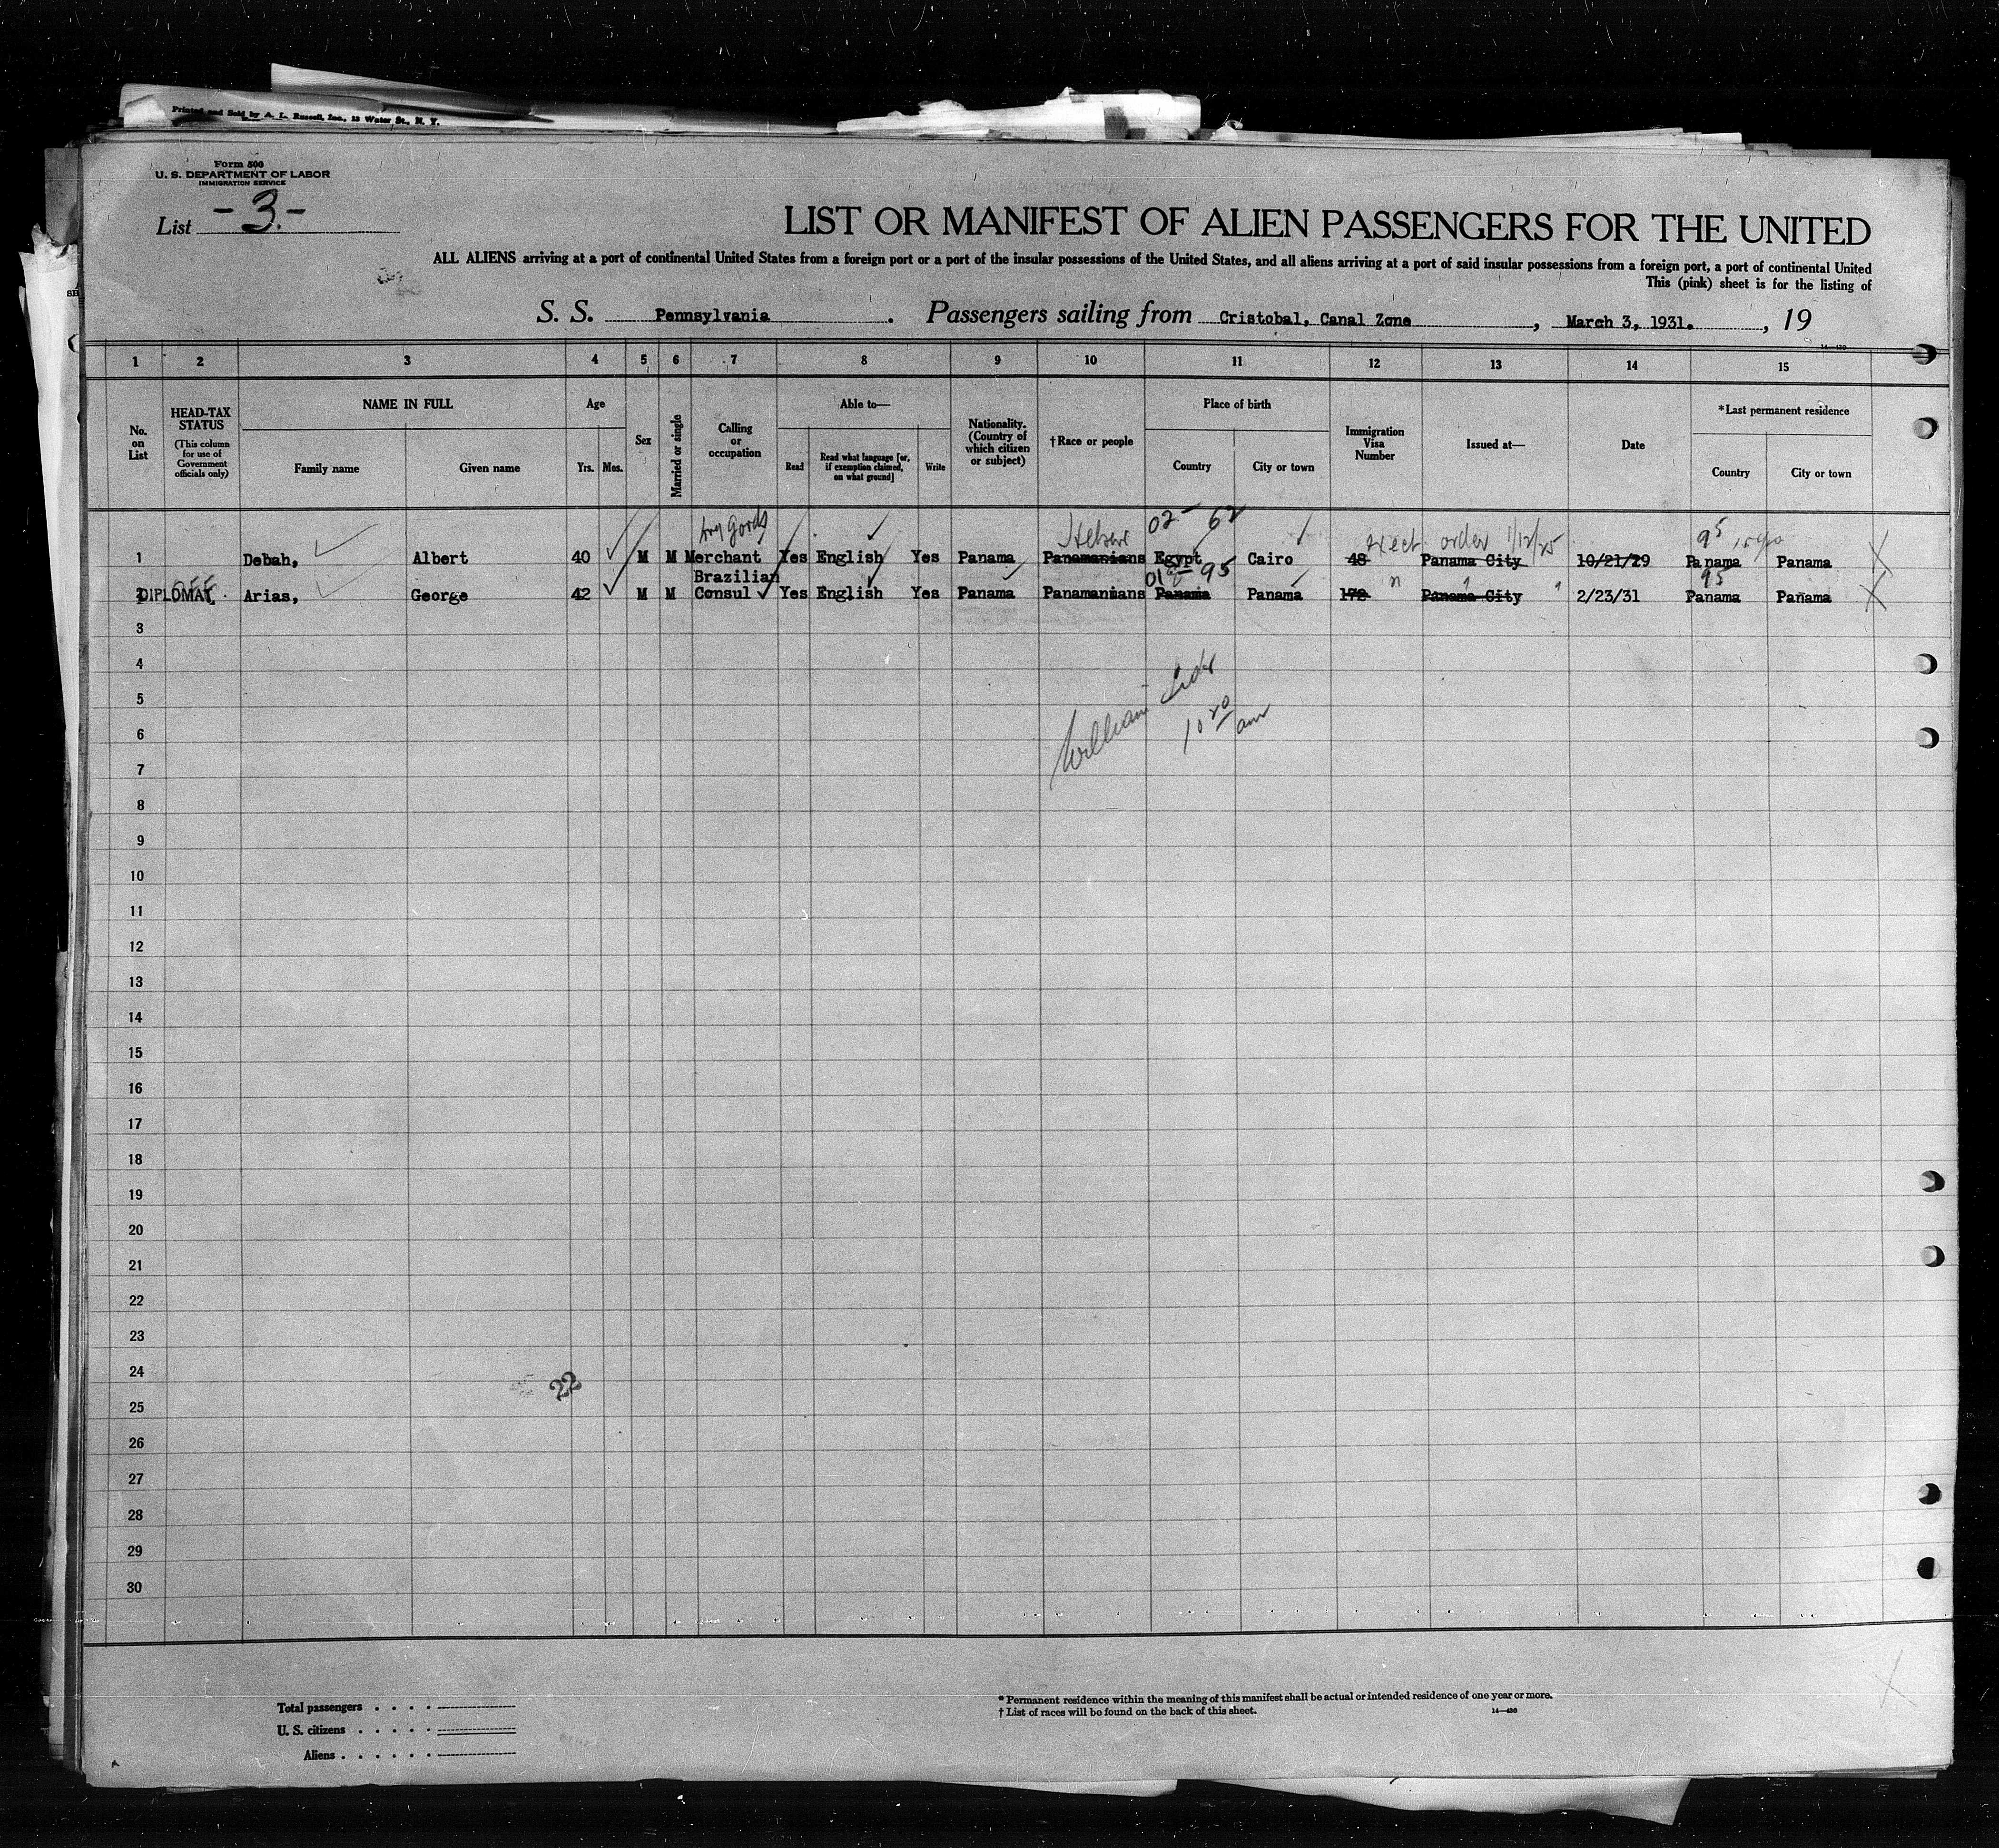 Printed and Sold by A. L. Russell, Inc., 12 Water St., N. Y.
Form 500
U. S. DEPARTMENT OF LABOR
IMMIGRATION SERVICE
List -3-
LIST OR MANIFEST OF ALIEN PASSENGERS FOR THE UNITED
ALL ALIENS arriving at a port of continental United States from a foreign port or a port of the insular possessions of the United States, and all aliens arriving at a port of said insular possessions from a foreign port, a port of continental United
This (pink) sheet is for the listing of
S. S. Pennsylvania . Passengers sailing from Cristobal, Canal Zone , March 3, 1931. , 19
14—430
1 2 3 4 5 6 7 8 9 10 11 12 13 14 15
No. on List
HEAD-TAX STATUS
(This column for use of Government officials only)
NAME IN FULL
Family name
Given name
Age
Yrs. Mos.
Sex
Married or single
Calling or occupation
Able to—
Read
Read what language [or, if exemption claimed, on what ground]
Write
Nationality. (Country of which citizen or subject)
†Race or people
Place of birth
Country
City or town
Immigration Visa Number
Issued at—
Date
*Last permanent residence
Country
City or town
Dry goods Hebrew 02- 62 Exect. order 1/12/25 95
1 Debah, Albert 40 M M Merchant Yes English Yes Panama Panamanians Egypt Cairo 48 Panama City 10/21/29 Panama Panama
Brazilian 95 95
2 DIPLOMAT. Arias, George 42 M M Consul Yes English Yes Panama Panamanians Panama Panama 178 " Panama City " 2/23/31 Panama Panama
3
4
5
William
6
10 am
7
8
9
10
11
12
13
14
15
16
17
18
19
20
21
22
23
24
22
25
26
27
28
29
30
Total passengers . . . .
U. S. citizens . . . . .
Aliens . . . . . .
* Permanent residence within the meaning of this manifest shall be actual or intended residence of one year or more.
† List of races will be found on the back of this sheet.
14—430